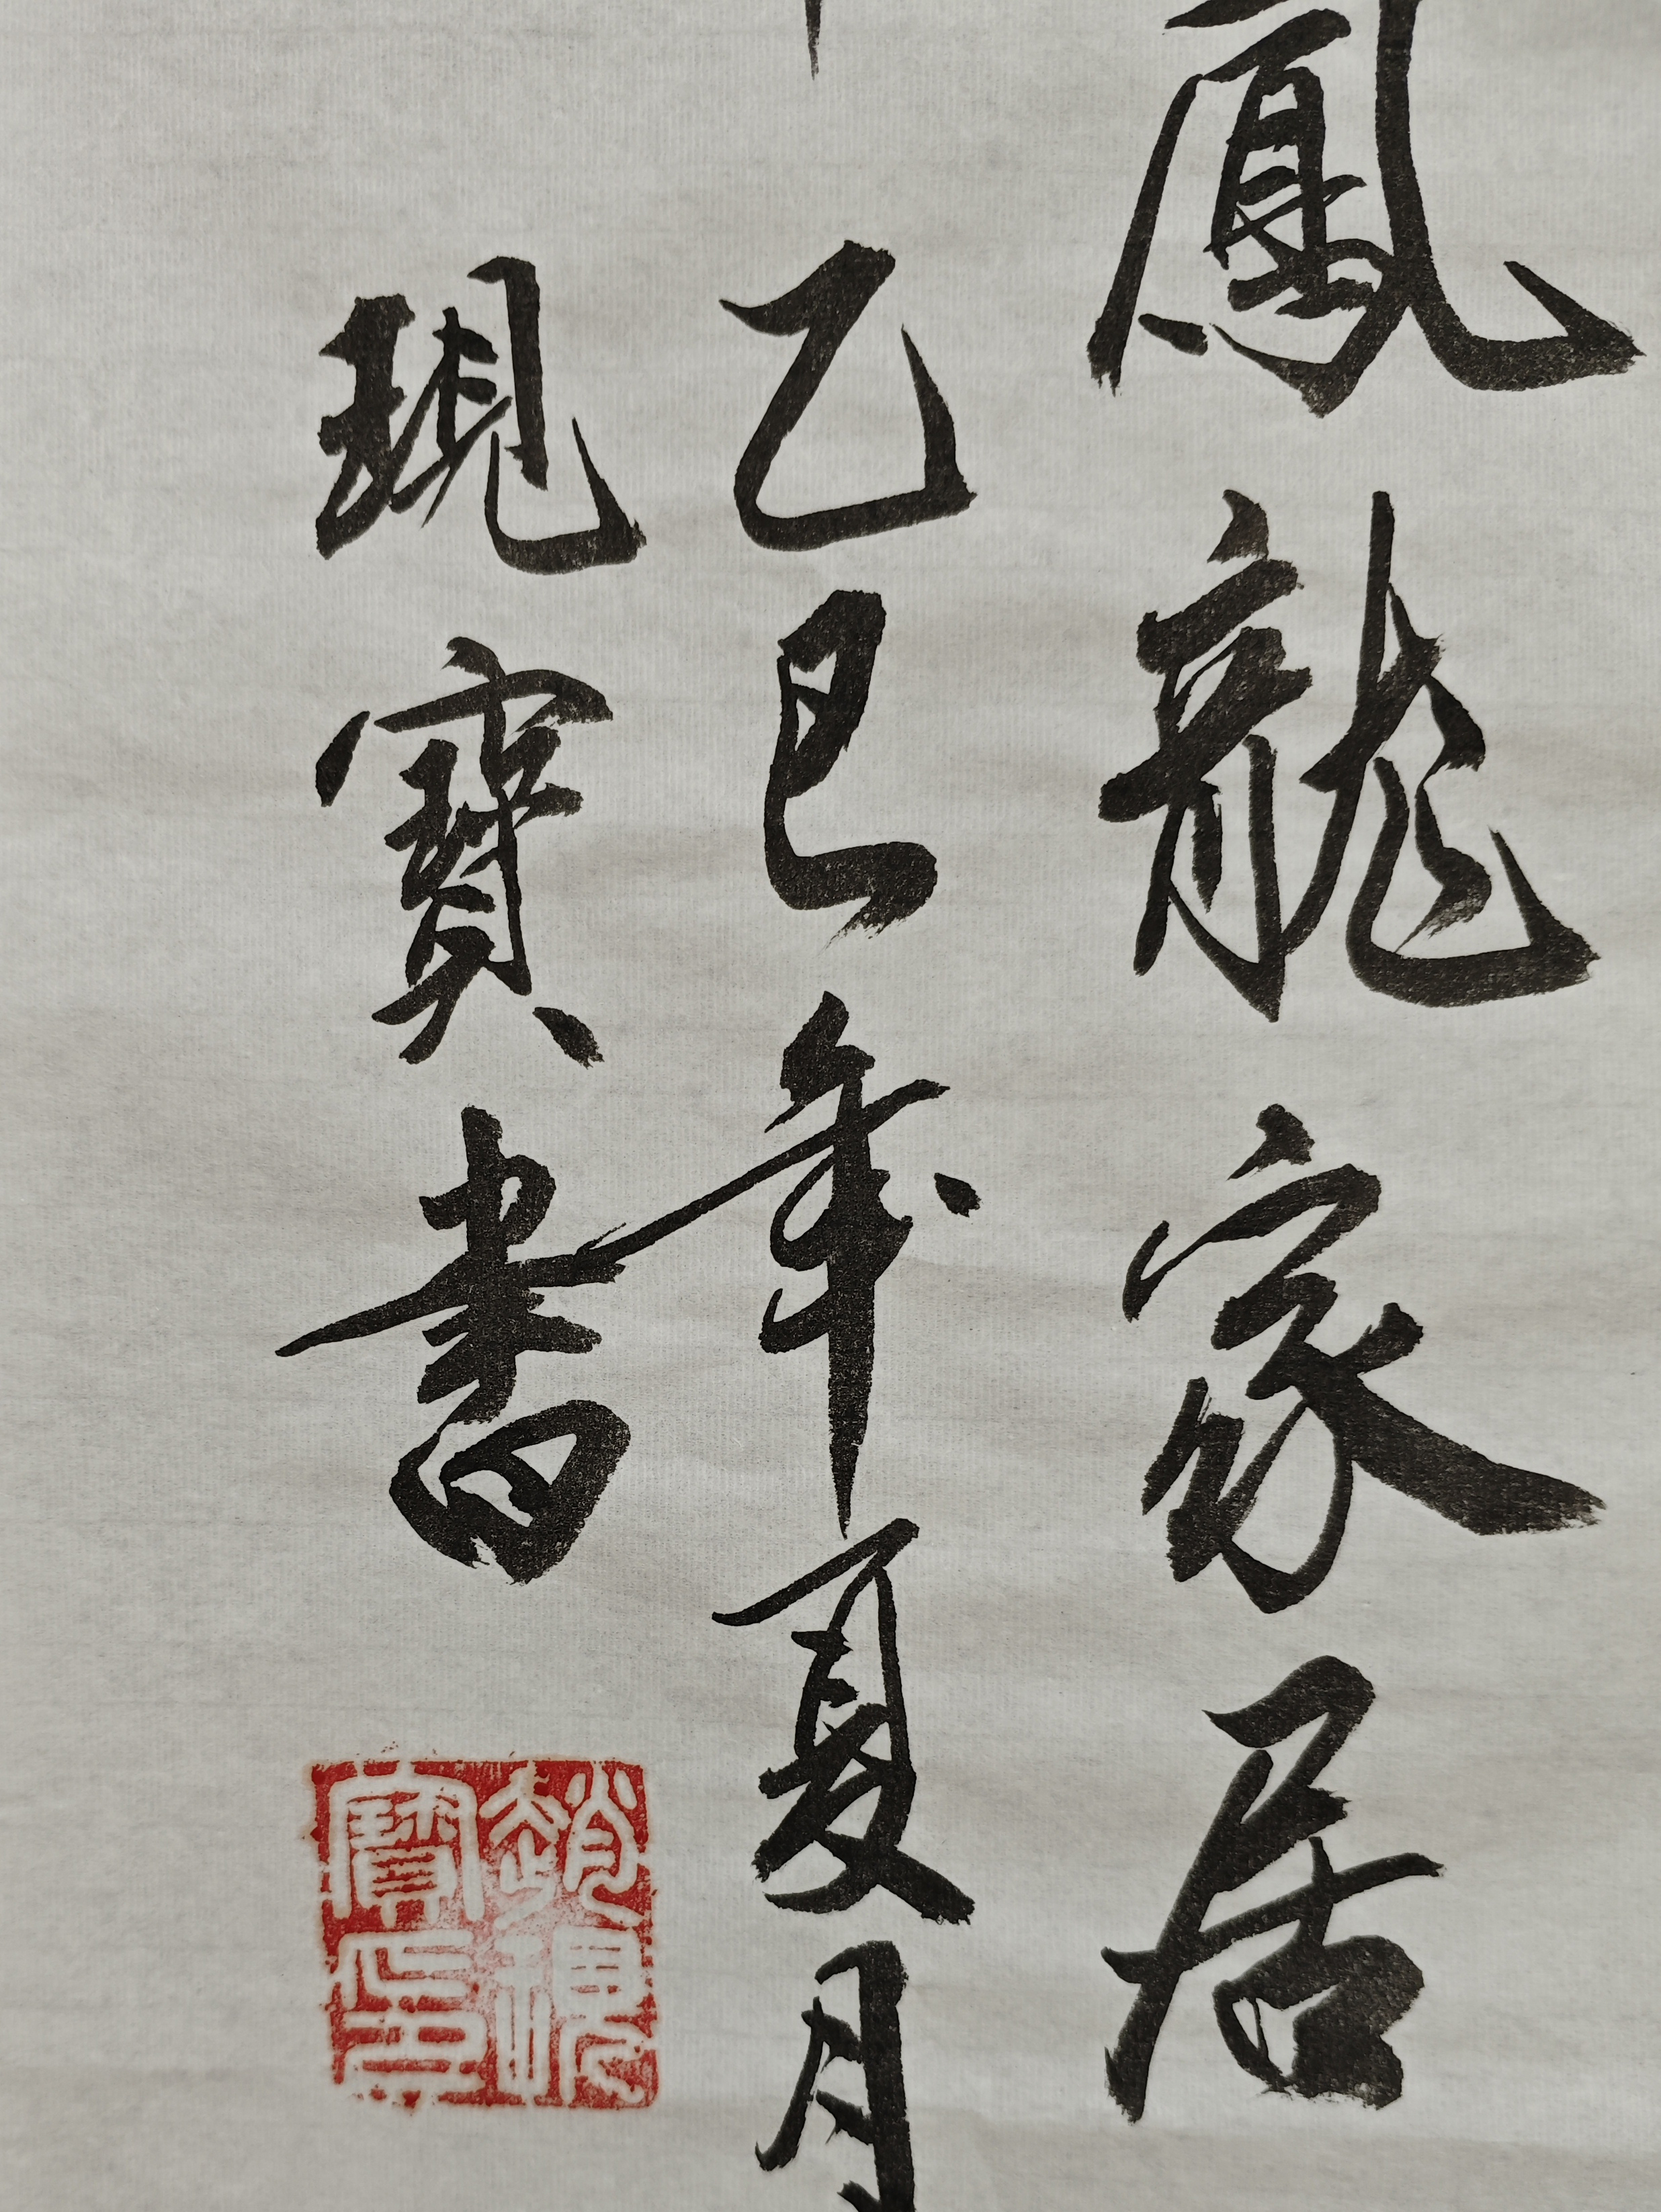 鳳龍家居
乙巳年夏月
現寶書
趙現寶印